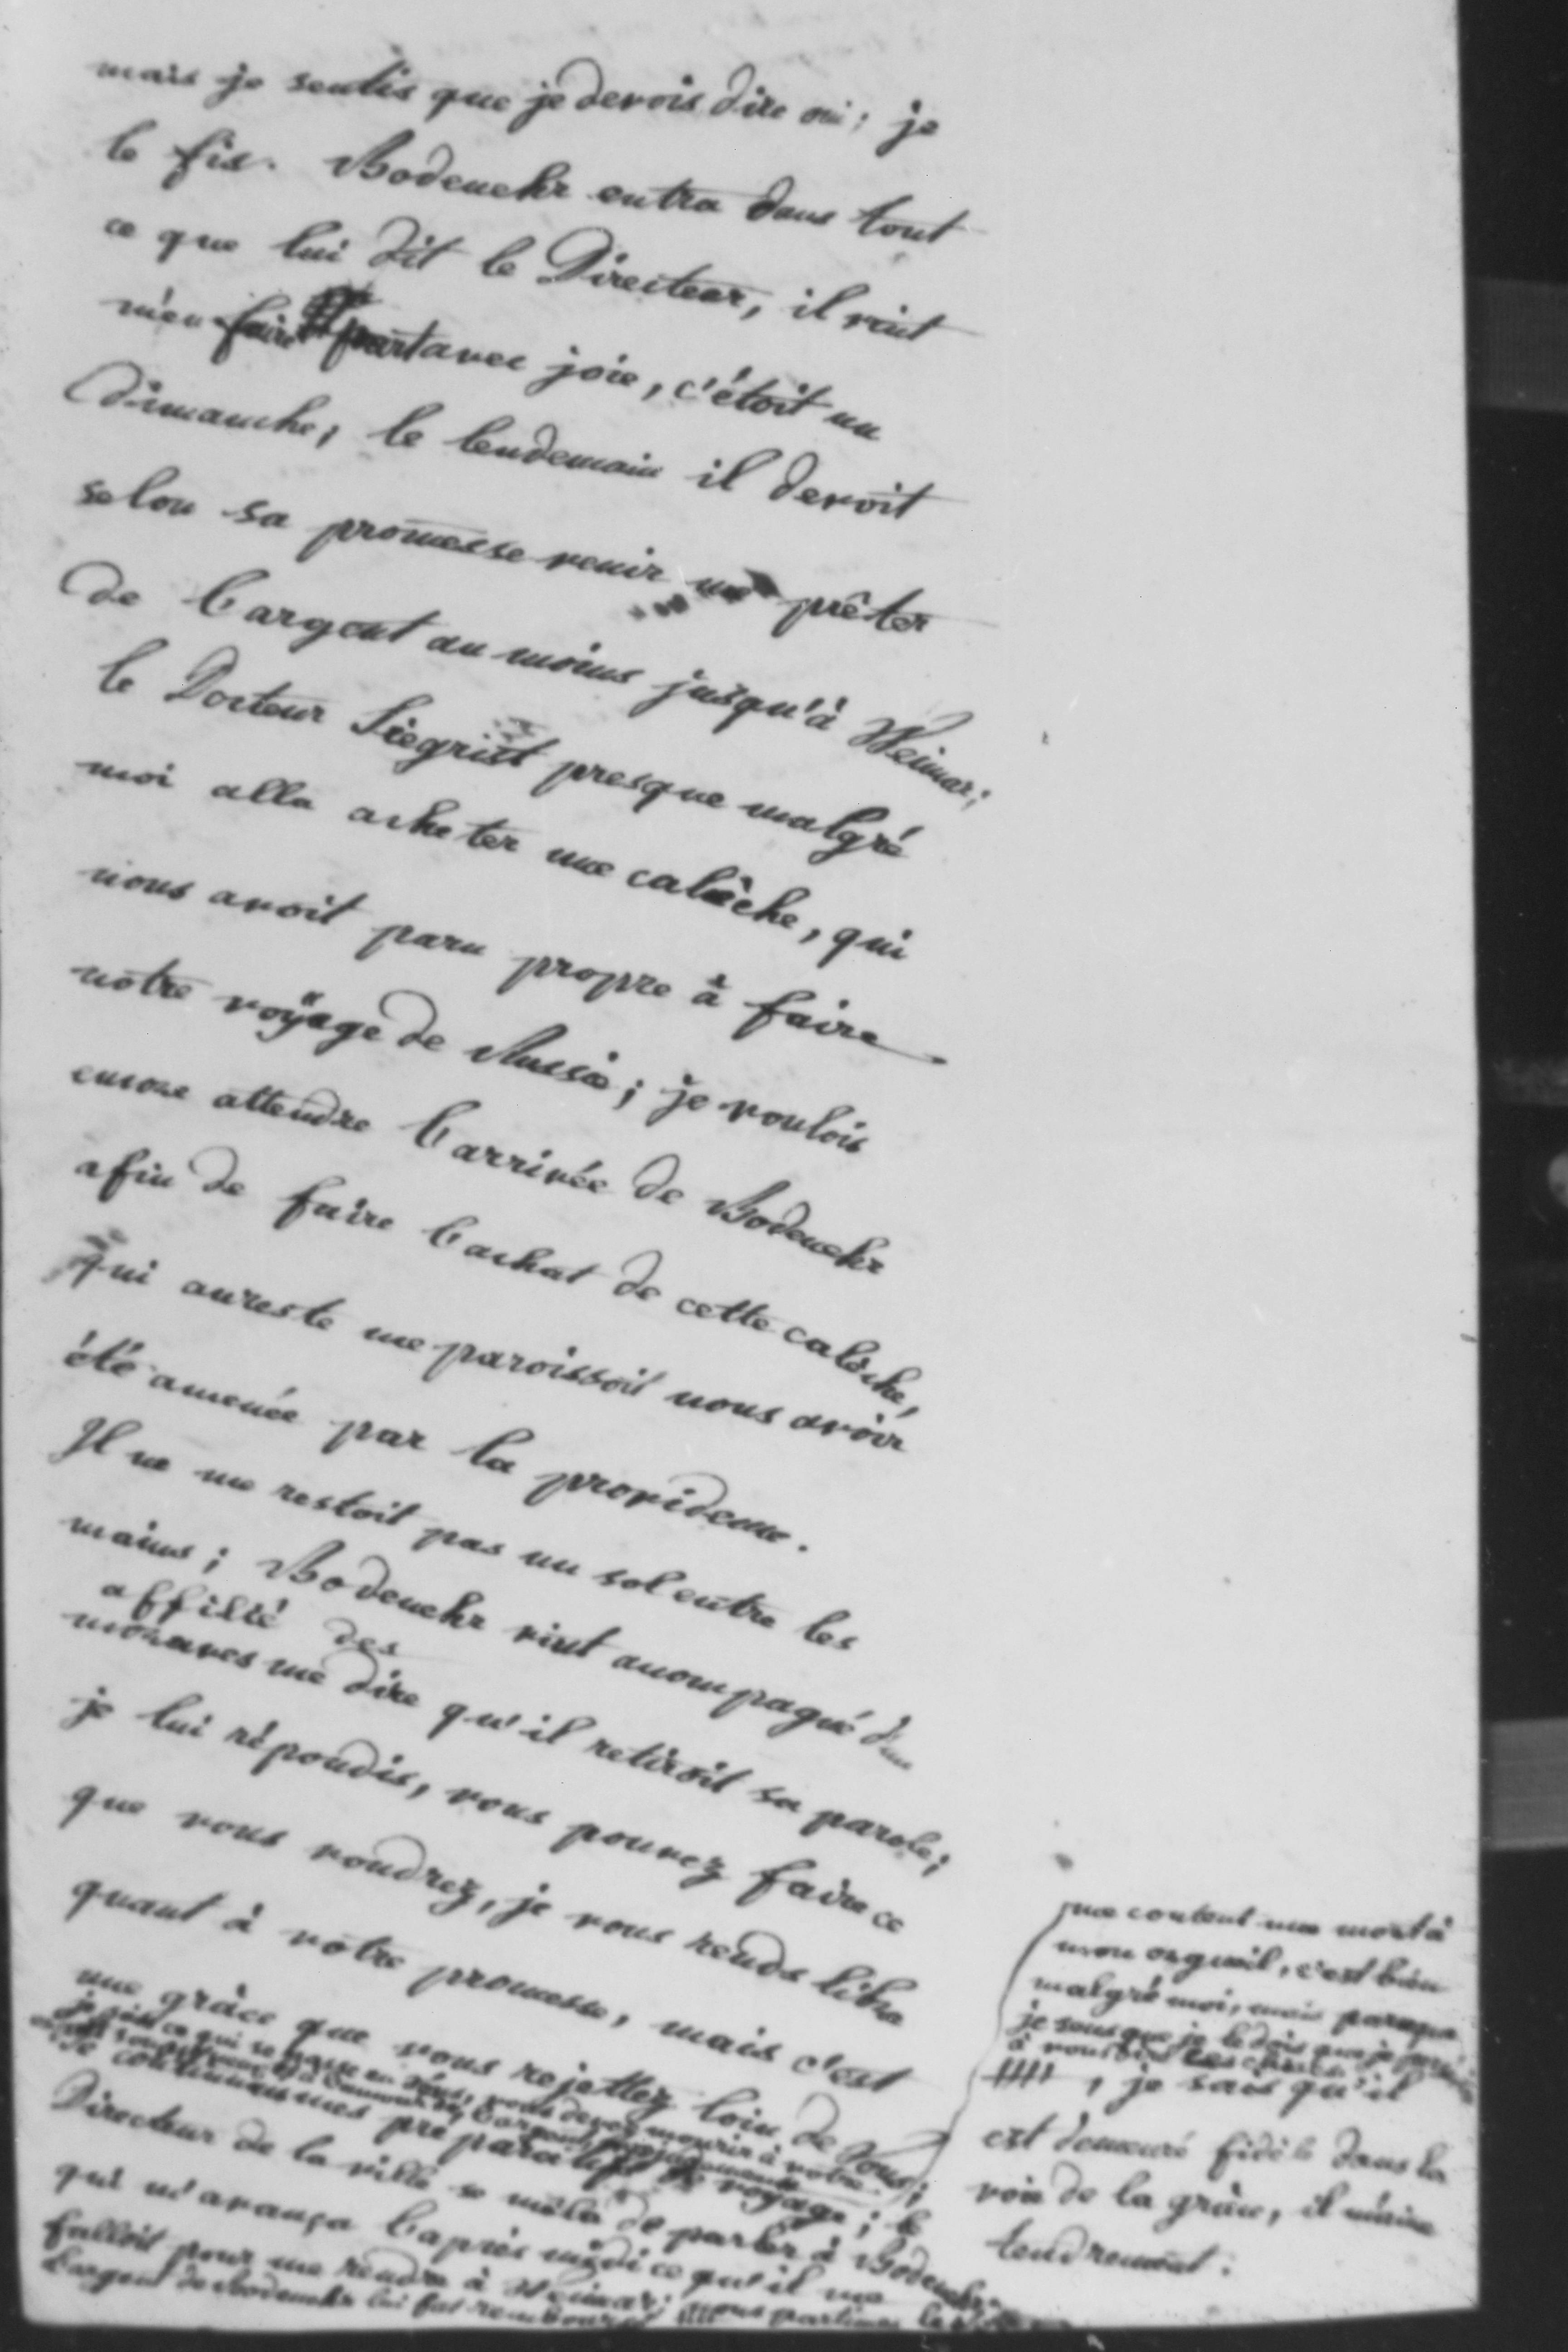 mais je sentis que je devois dire oui; je
le fis. Bodenehr entra dans tout
ce que lui dit le Directeur, il vint
m'en faire part avec joie, c'étoit un
Dimanche, le lendemain il devoit
selon sa promesse venir me prêter
de l'argent au moins jusqu'à Weimar;
le Docteur Siegrist presque malgré
moi alla acheter une calèche, qui
nous avoit paru propre à faire
notre voÿage de Russie; je voulois
encore attendre l'arrivée de Bodenehr
afin de faire l'achat de cette calèche,
qui aureste me paroissoit nous avoir
été amenée par la providence.
Il ne me restoit pas un sol entre les
mains; Bodenehr vint accompagné d'un
affilié des
moraves me dire qu'il retiroit sa parole;
je lui répondis, vous pouvez faire ce
que vous voudrez, je vous rends libre
quant à votre promesse, mais c'est
une grâce que vous rejettez loin de vous;
je sais ce qui se passe en vous, vous devez mourir à votre
je continuai mes préparatifs de voyage; le
Directeur de la ville se mêla de parler à Bodenehr
qui m'avança l'après midi ce qu'il me
falloit pour me rendre à Weimar; nous partimes le
l'argent de Bodenehr lui fut remboursé
me content une mort à
mon orgueil, c'est bien
malgré moi, mais parceque
je sens que je le dois que je
à vous
, je sais qu'il
est demeuré fidèle dans la
voie de la grâce, il m'aime
tendrement.